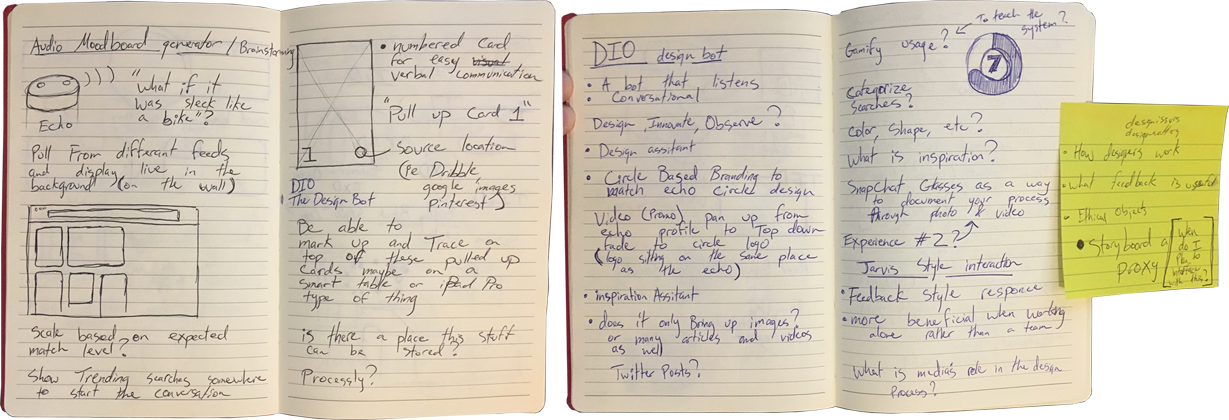 Audio Moodboard generator / Brainstorming
"What if it
was sleek like
a bike"?
Echo
Pull From different feeds
and display live in the
background (on the wall)
Scale based on expected
match level?
Show Trending searches somewhere
to start the conversation
• numbered card
for easy visual
verbal communication
"Pull up Card 1"
1
Source location
(ie Dribble
google images
Pinterest)
DIO
The Design Bot
Be able to
mark up and Trace on
top of these pulled up
cards maybe on a
smart table or iPad Pro
type of thing
is there a place this stuff
can be stored?
Processly?
DIO design bot
• A bot that listens
• Conversational
Design, Innovate, Observe?
• Design assistant
• Circle Based Branding to
match echo circle design
Video (Promo) pan up from
echo profile to Top down
fade to circle logo
(logo sitting on the same place
as the echo)
• inspiration Assitant
• does it only Bring up images?
or many articles and videos
as well
Twitter Posts?
Gamify usage?
To teach the
system?
7
Categorize
searches?
color, shape, etc?
What is inspiration?
SnapChat Glasses as a way
to document your process
through photo & video
Experience #2?
Jarvis Style interaction
• Feedback style responce
• more beneficial when working
alone rather than a team
What is media's role in the design
Process?
• How designers work
• what feedback is useful
• Ethical Objects
• Storyboard a
proxy
When
do I
to
interface
with this?